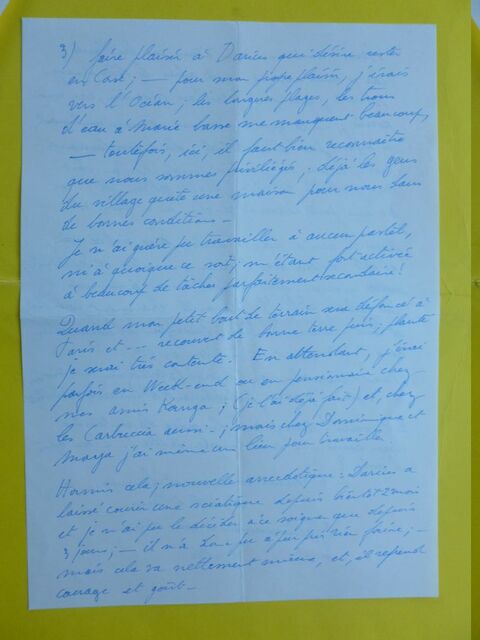 3) faire plaisir à Darius qui désire rester
en Corse; — pour mon propre plaisir, j'irais
vers l'Océan; les longues plages, les trous
d'eau à Marée basse me manquent beaucoup,
— toutefois, ici, il faut bien reconnaître
que nous sommes privilégiés; déjà les gens
du village une maison pour nous dans
de bonnes conditions —
Je n'ai guère pu travailler à aucun pastel,
ni à quoique ce soit; m'étant fort activée
à beaucoup de tâches parfaitement secondaires!
Quand mon petit bout de terrain sera défoncé à
et -- recouvert de bonne terre puis; planté
je serai très contente. En attendant, j'irai
parfois en Week-end ou en pensionnaire chez
mes amis Kanga; (je l'ai déjà fait) et, chez
les Carbuccia aussi -; mais chez Dominique et
Maya j'ai même un lieu pour travailler
Hormis cela; nouvelle anecdotique: Darius a
laissé courir une sciatique depuis bientôt 2 mois
et je n'ai pu le décider à ce soigner que depuis
3 jours; — il n'a pu rien faire; —
mais cela va nettement mieux, et, il reprend
courage et goût —